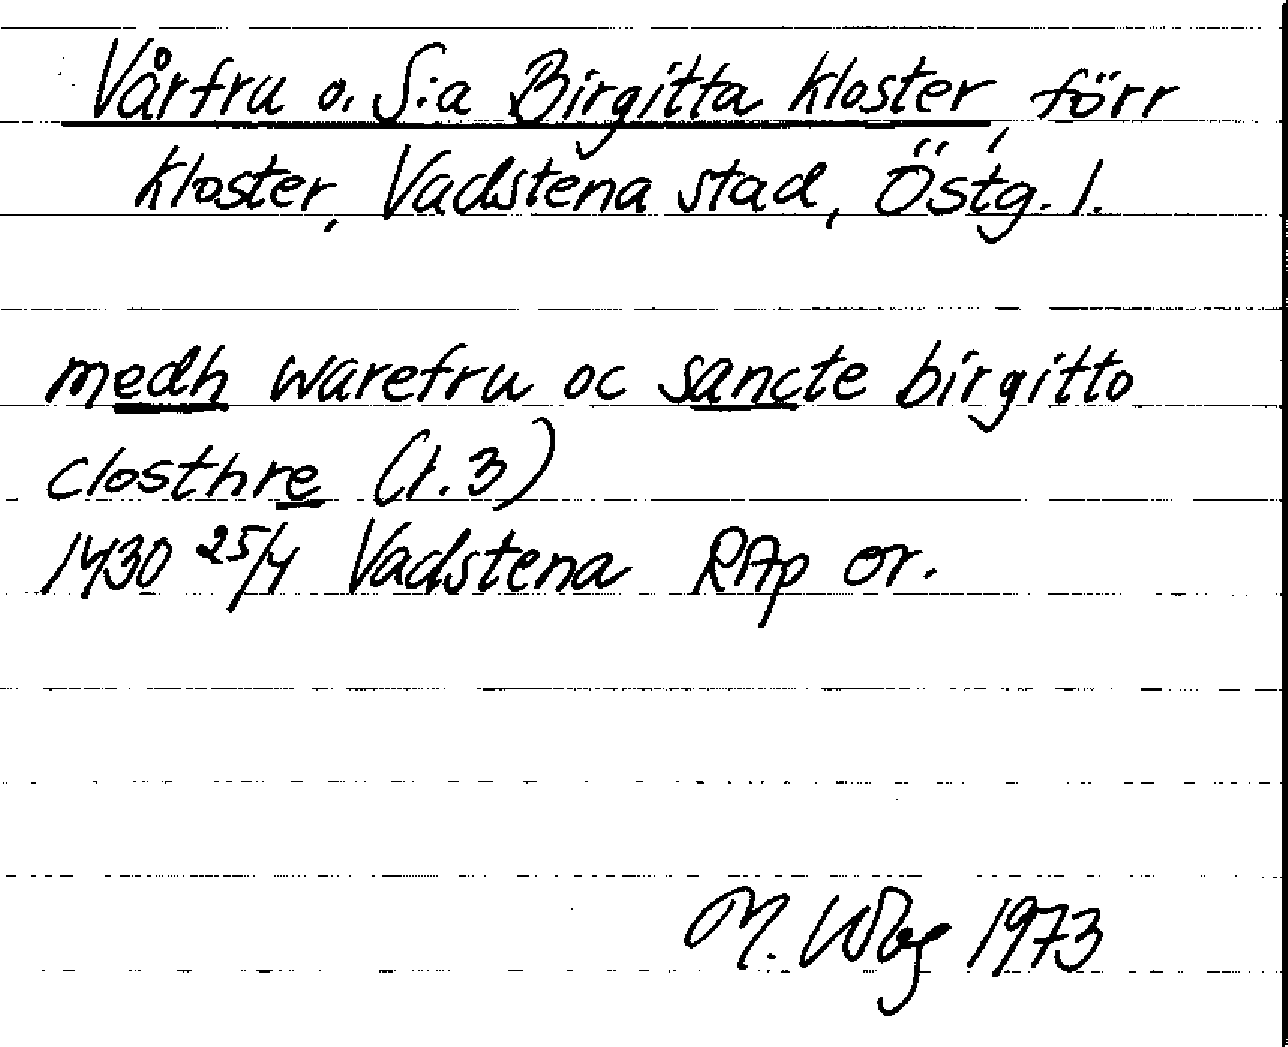 Vårfru o. S:a Birgitta kloster, förr
kloster, Vadstena stad, Östg. l.
medh warefru oc sancte birgitto
closthre (r. 3)
1430 25/4 Vadstena RAp or.
M. Wbg 1973